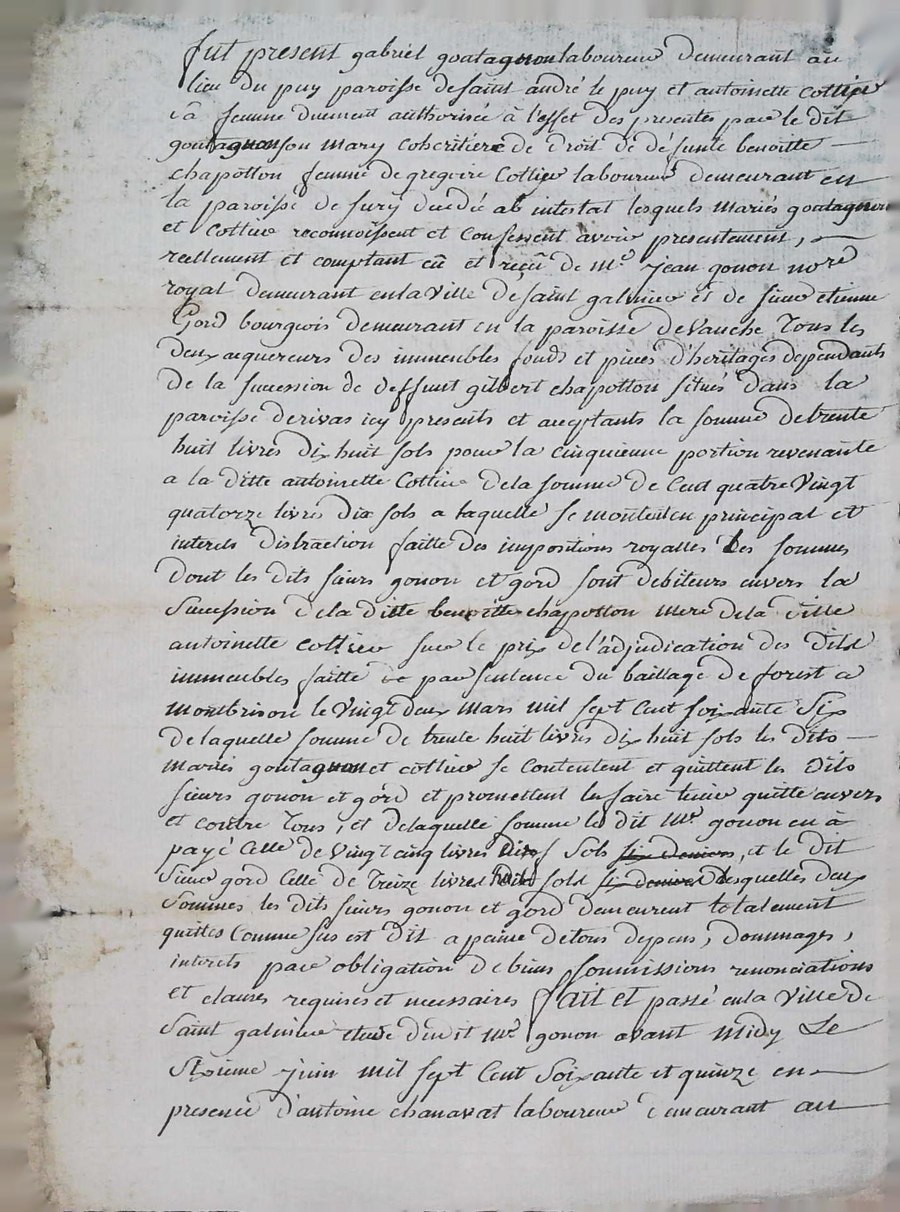 fut present gabriel goutagnon laboureur demeurant au
lieu du puy paroisse de saint andré le puy et antoinette Cottier
sa femme duement authorisée à l'effet des presentes par le dit
goutagnon son mary coheritiere de droit de défunte benoitte
chapotton femme de gregoire Cottier laboureur demeurant en
la paroisse de sury décédée ab intestat lesquels mariés goutagnon
et Cottier reconnoissent et confessent avoir presentement,
reellement et comptant eû et reçû de me jean gonon nore
royal demeurant en la ville de saint galmier et de sieur etienne
Gord bourgeois demeurant en la paroisse de Vauche Tous les
deux acquereurs des immeubles fonds et pieces d'heritages dependants
de la succession de deffunt gilbert chapotton situés dans la
paroisse de rivas icy presents et acceptants la somme de trente
huit livres dix huit sols pour la cinquieme portion revenante
a la ditte antoinette Cottier de la somme de Cent quatre Vingt
quatorze livres dix sols a laquelle se montent en principal et
interets distraction faitte des impositions royalles les sommes
dont les dits sieurs gonon et gord sont debiteurs envers la
succession de la ditte benoitte chapotton mere de la ditte
antoinette cottier sur le prix de l'adjudication des dits
immeubles faitte par sentence du baillage de forest a
montbrison le Vingt deux mars mil sept Cent soixante six
de laquelle somme de trente huit livres dix huit sols les dits
mariés goutagnon et cottier se Contentent et quittent les dits
sieurs gonon et gord et promettent les faire tenir quitte envers
et contre Tous, et de laquelle somme le dit me gonon en a
payé Celle de Vingt cinq livres dix sols six deniers, et le dit
sieur gord Celle de treize livres huit sols six deniers desquelles deux
sommes les dits sieurs gonon et gord demeurent totalement
quittes Comme sus est dit a peine de tous depens, dommages,
interets par obligation de biens soumissions renonciations
et clauses requises et necessaires fait et passé en la Ville de
saint galmier etude du dit me gonon avant midy Le
sixieme juin mil sept Cent soixante et quinze en
presence d'antoine chanavat laboureur demeurant au